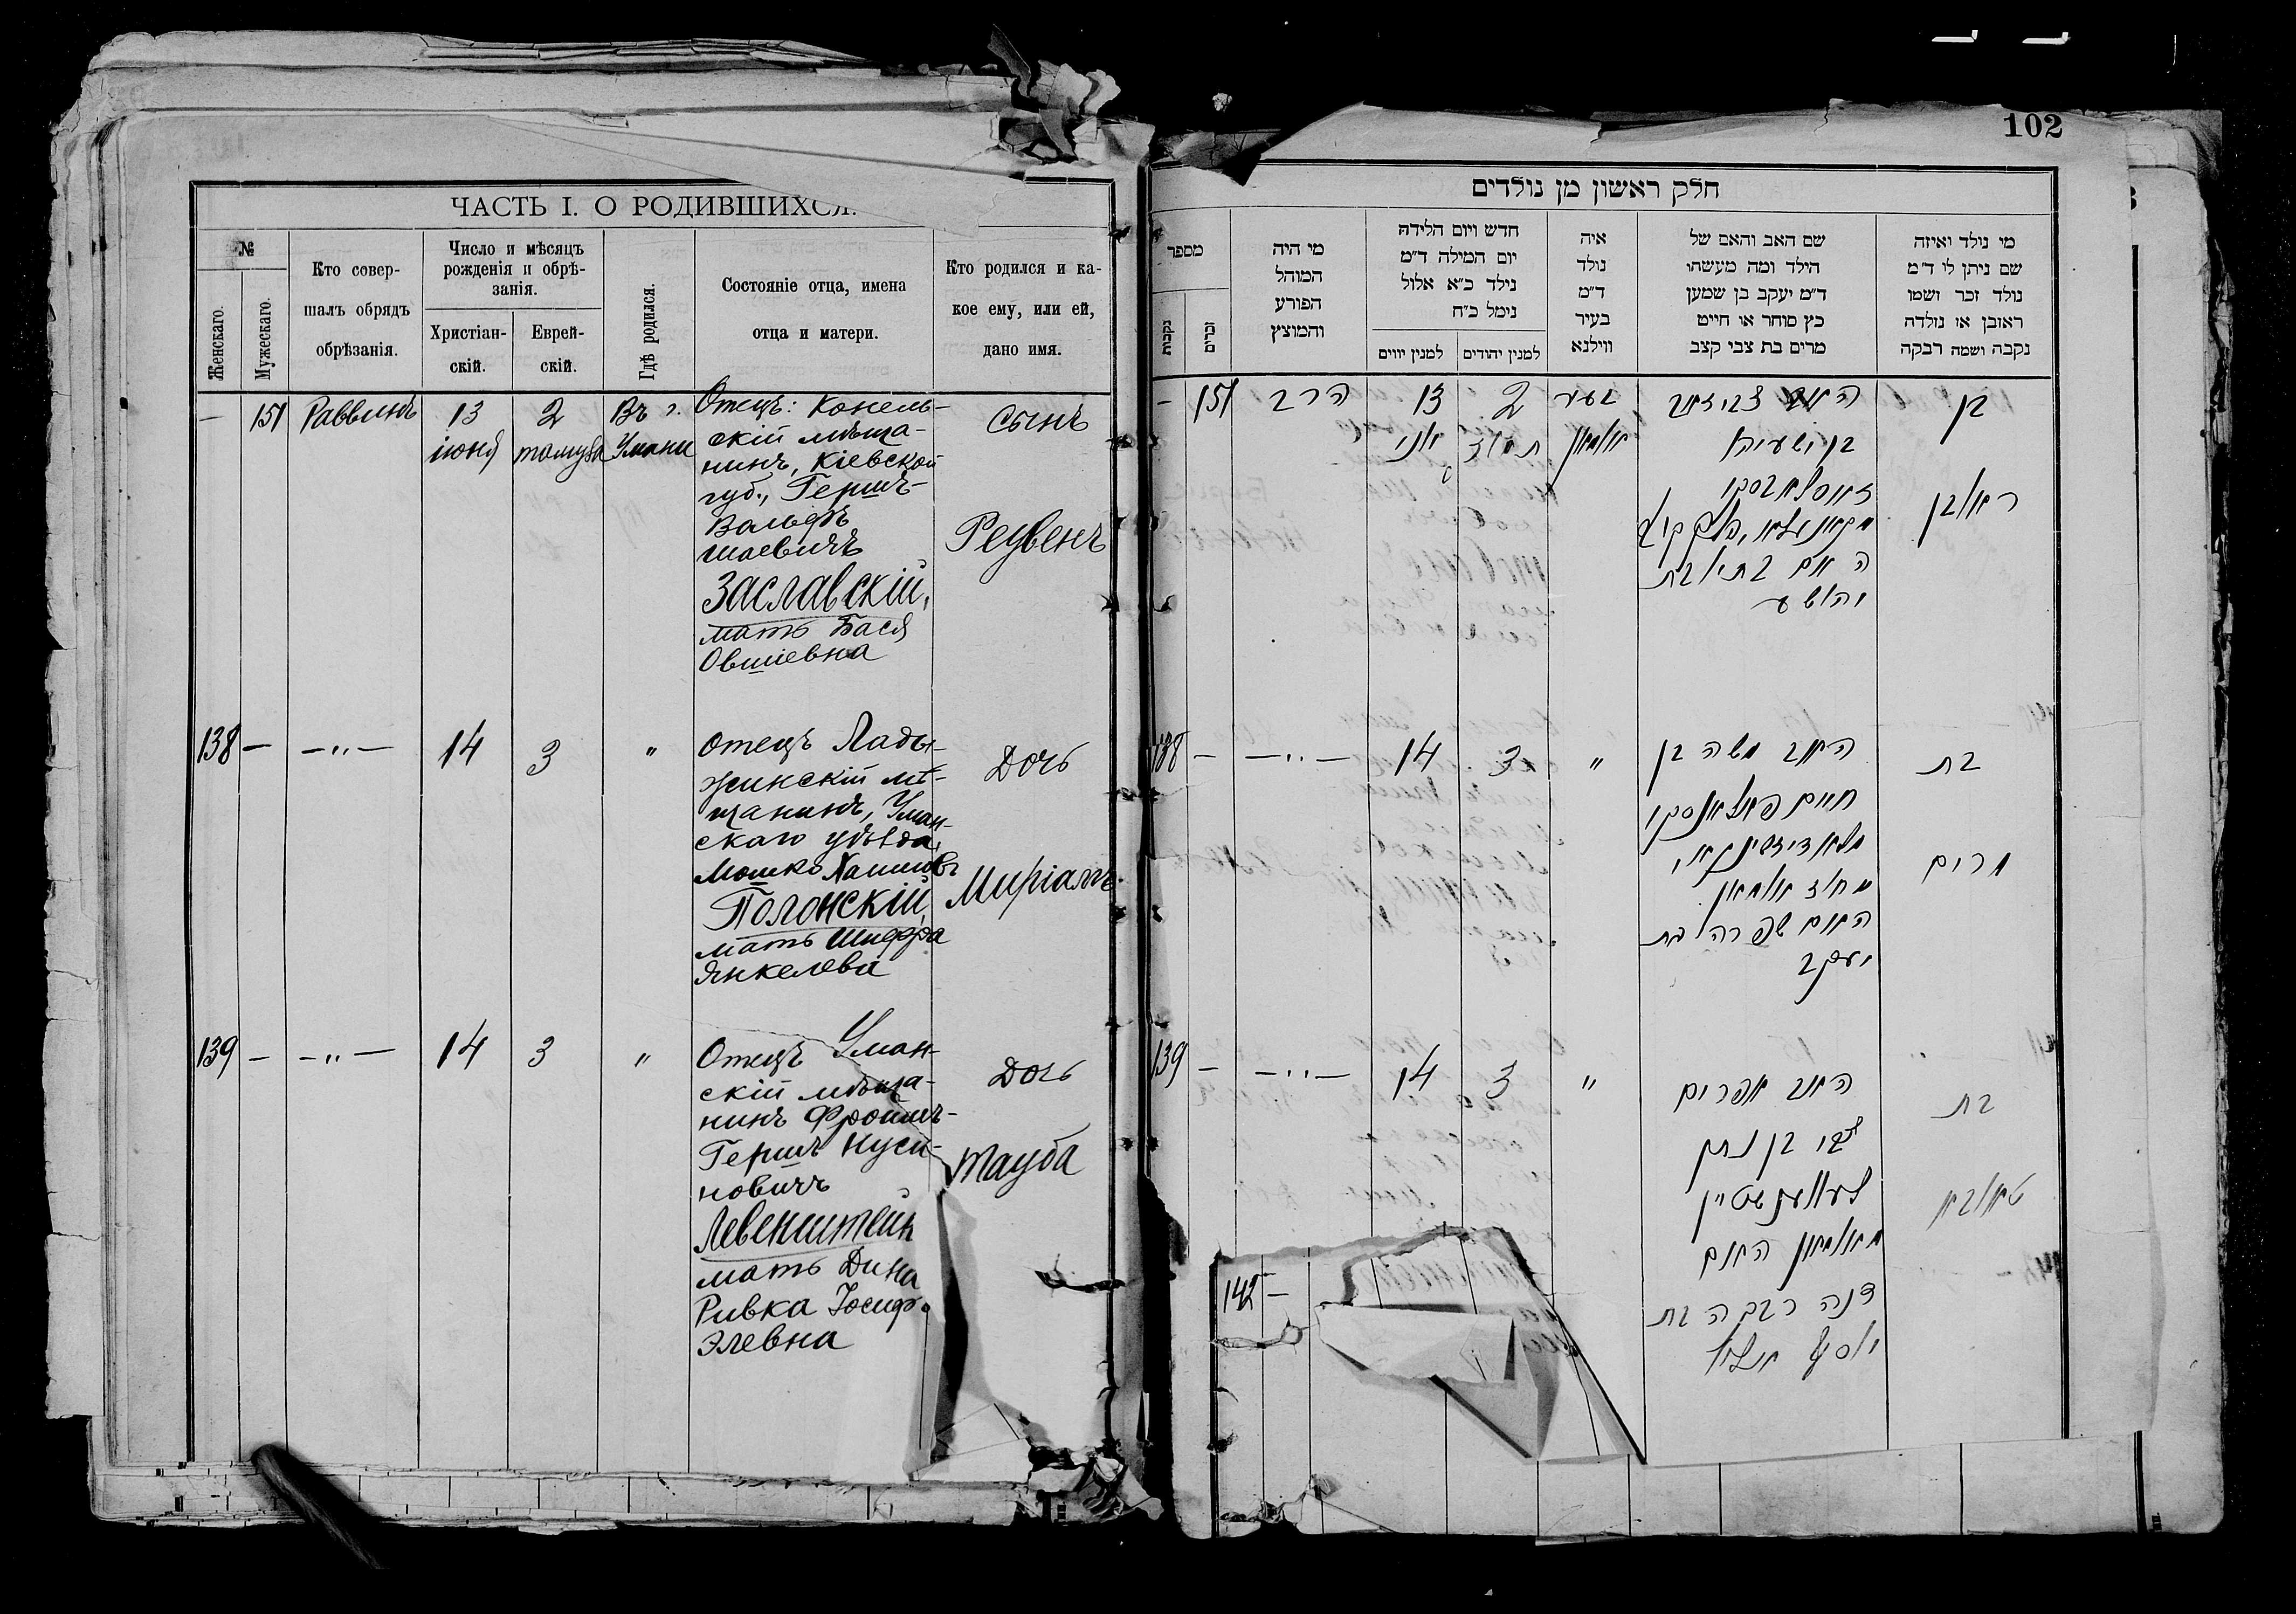 ЧАСТЬ I. О РОДИВШИХСЯ.
№
Женскаго.
Мужескаго.
Кто совер-
шалъ обрядъ
обрѣзанія.
Число и мѣсяцъ
рожденія и обрѣ-
занія.
Христіан-
скій.
Еврей-
скій.
Гдѣ родился.
Состояніе отца, имена
отца и матери.
Кто родился и ка-
кое ему, или ей,
дано имя.
— 151 Раввинъ 13 2 Въ г.
іюня томуза Умани
Отецъ: Конель-
скій мѣща-
нинъ, Кіевской
губ., Гершъ-
Вольфъ
Шаевичъ
Заславскій,
мать Бася
Овшіевна
Сынъ
Реувенъ
138 — —„— 14 3 „
Отецъ Лады-
жинскій мѣ-
щанинъ, Уман-
скаго уѣзда,
Мошко Хаимовъ
Полонскій,
мать Шифра
Янкелева
Дочь
Миріамъ
139 — —„— 14 3 „
Отецъ Уман-
скій мѣща-
нинъ Фроимъ-
Гершъ Нуси-
новичъ
Левенштейн
мать Дина
Ривка Іосиф-
Элевна
Дочь
Тауба
102
חלק ראשון מן נולדים
מספר
נקבות
זכרים
מי היה
המוהל
הפורע
והמוצץ
חדש ויום הלידה
יום המילה ד״מ
נילד כ״א אלול
נימל כ״ח
למנין יווים
למנין יהודים
איה
נולד
ד״מ
בעיר
ווילנא
שם האב והאם של
הילד ומה מעשהו
ד״מ יעקב בן שמען
כץ סוחר או חייט
מרים בת צבי קצב
מי נולד ואיזה
שם ניתן לו ד״מ
נולד זכר ושמו
ראובן או נולדה
נקבה ושמה רבקה
— 151 הרב 13 2
יוני תמוז
אומאן
האב צבי זאב
בן ישעיהו
זאסלאבסקי
האם בתי׳ בת
יהושע
בן
ראובן
138 — —„— 14 3 „
האב משה בן
חיים פאלאנסקי
מחוז אומאן
האם שפרה בת
יעקב
בת
מרים
139 — —„— 14 3 „
האב אפרים
צבי בן נתן
לעווענשטיין
מאומאן האם
דנה רבקה בת
יוסף
בת
טאובא
142 —